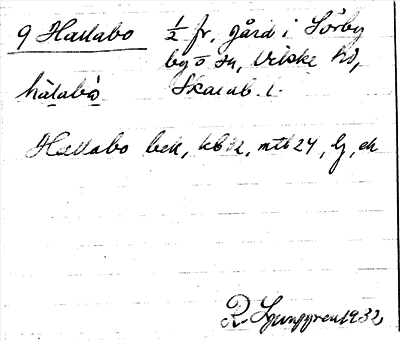 9 Hallabo ½ fr. gård i Sörby
by o sn, Vilske hd,
hàlabò Skarab. l.
Hallabo bek, kb 32, mtl 24, lj, ek
R. Ljunggren 1932